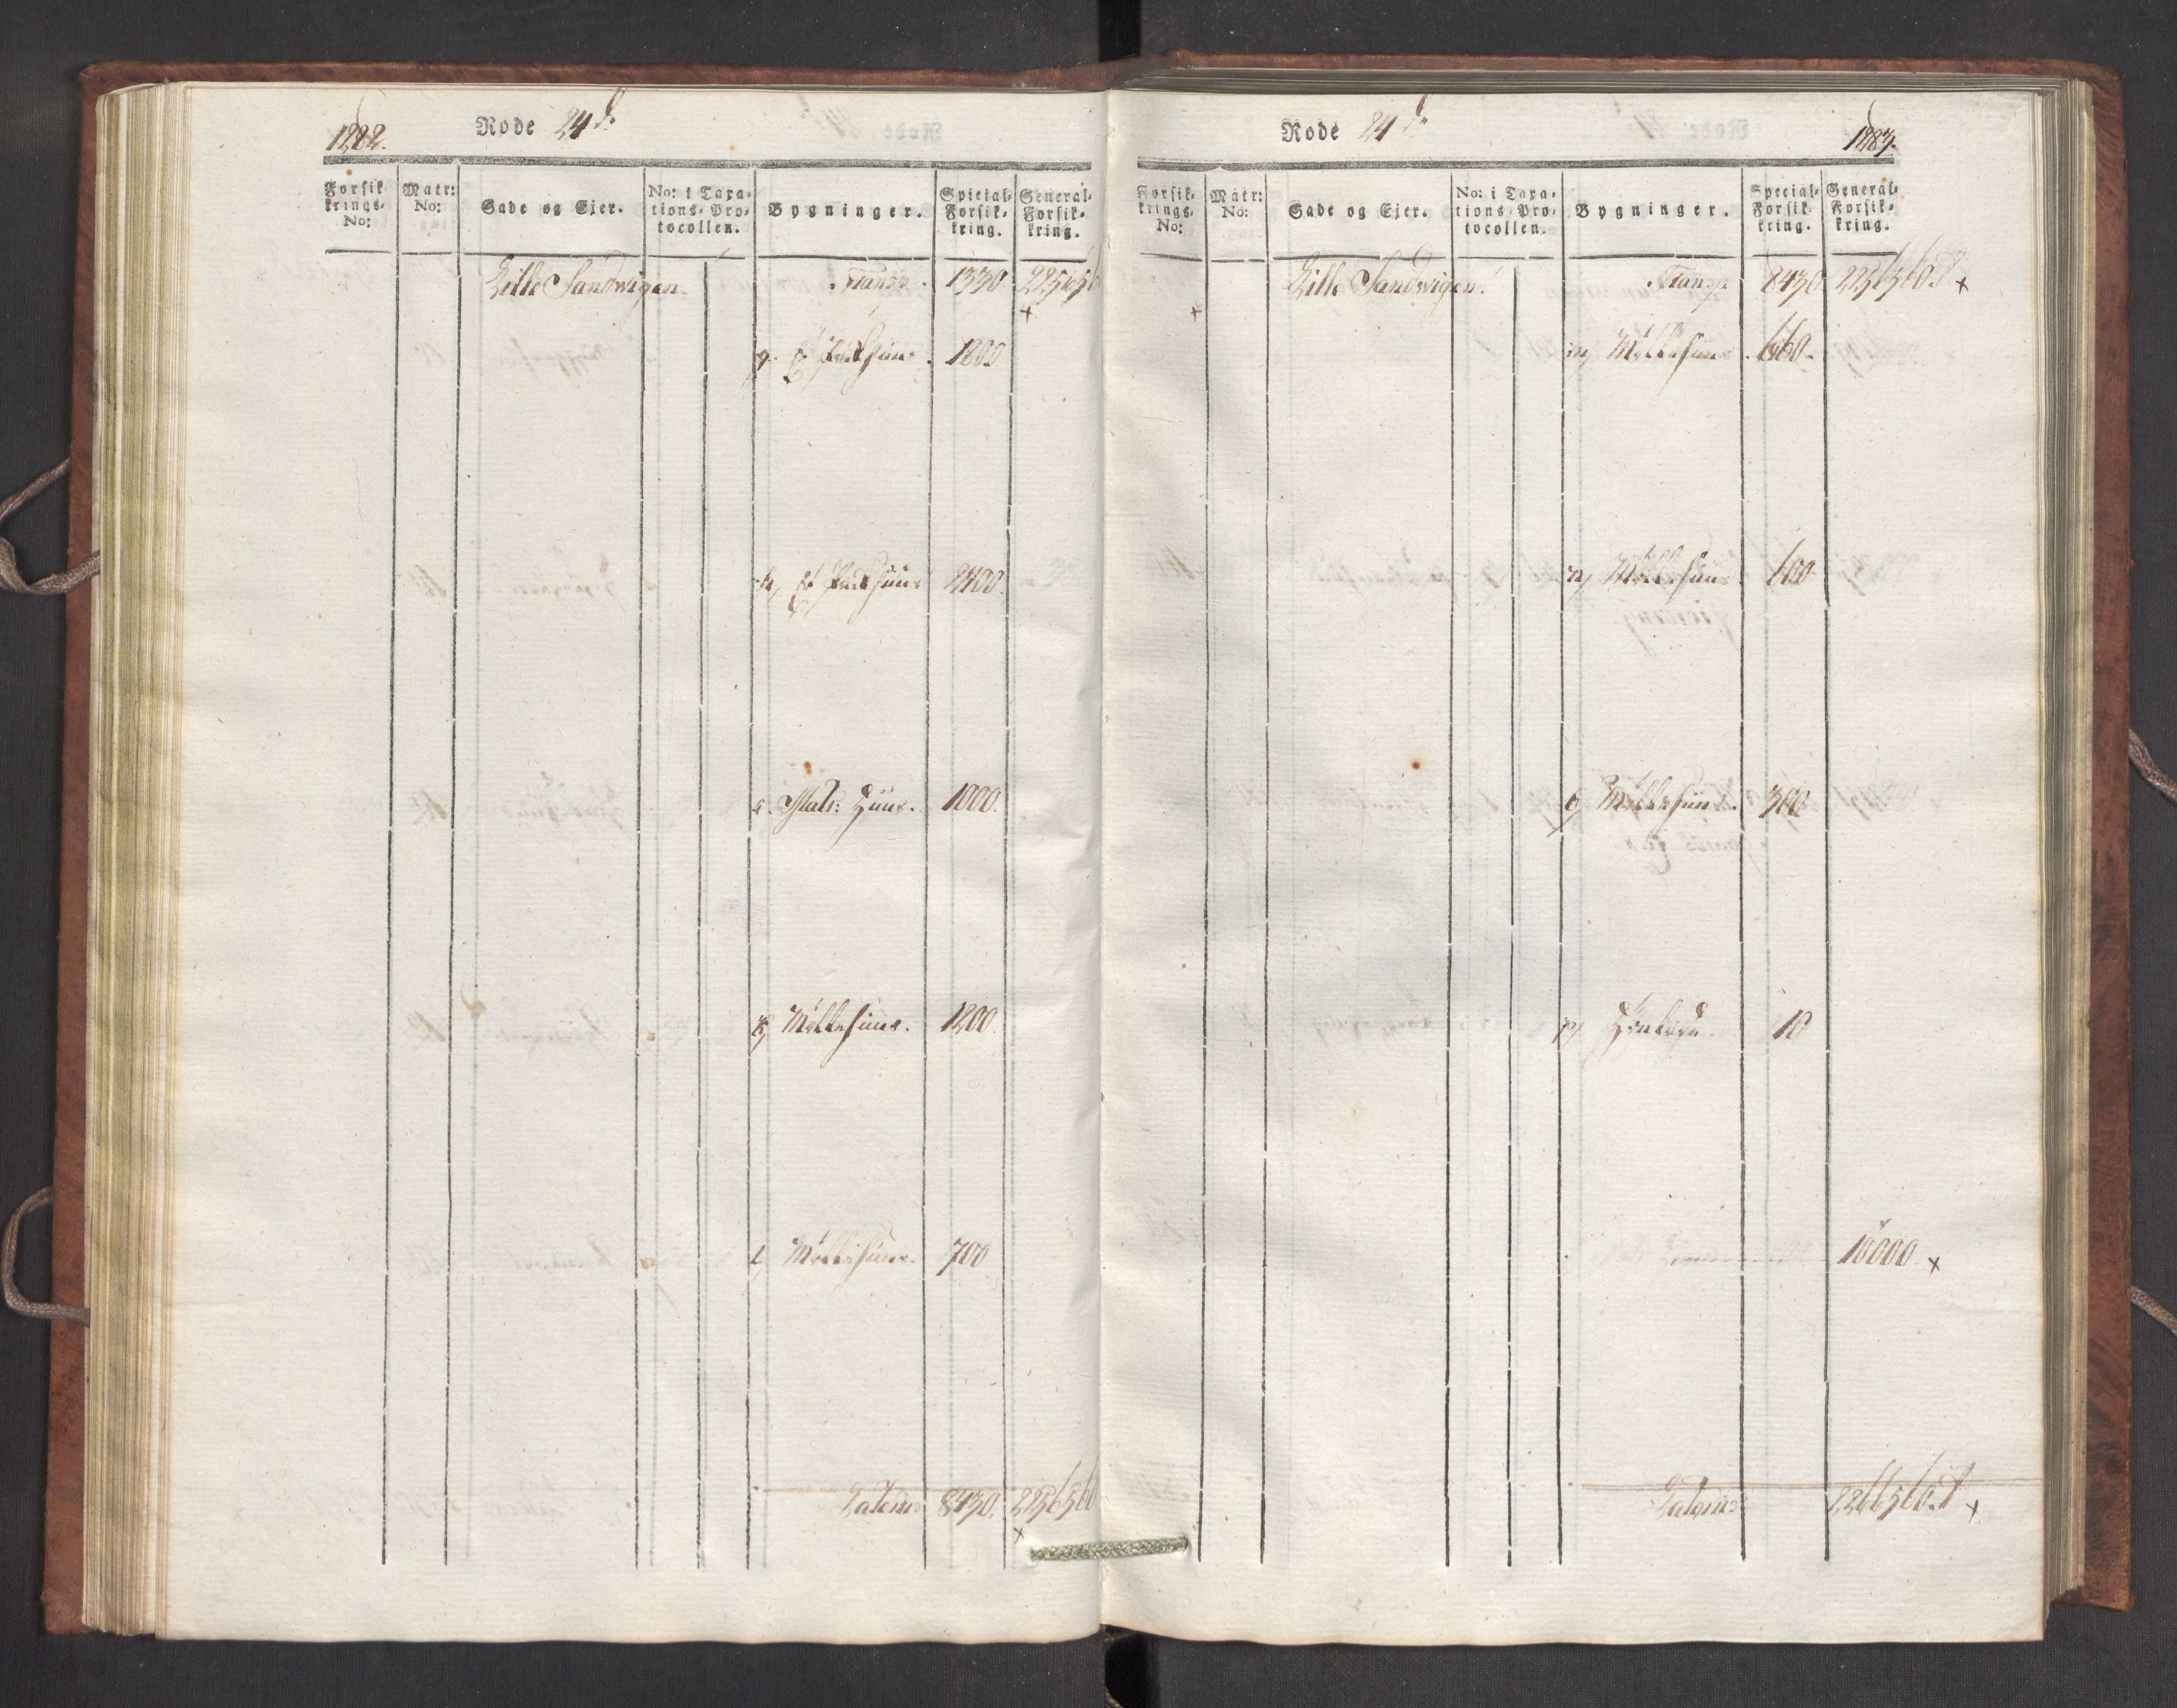 1282.
Rode 24de
Forsik-
krings-
No:
Matr:
No:
Gade og Ejer.
No: i Taxa-
tions-Pro-
tocollen.
Bygninger.
Special-
Forsik-
kring.
General-
Forsik-
kring.
Lille Sandwigen.
Transp. 1330
g. Et Packhuus. 1800.
h, Et Packhuus 2400.
1000.
k, Möllehuus. 1200.
l, Möllehuus. 700
Lateris 8430.
Rode 24de
1283.
Forsik-
krings-
No:
Matr:
No:
Gade og Ejer.
No: i Taxa-
tions-Pro-
tocollen.
Bygninger.
Special-
Forsik-
kring.
General-
Forsik-
kring.
Lille Sandwigen.
Transp. 8430
m, Möllehuus. 660.
n, Möllehuus. 600
o, Möllehuus. 300
p, 10
10000.
Lateris